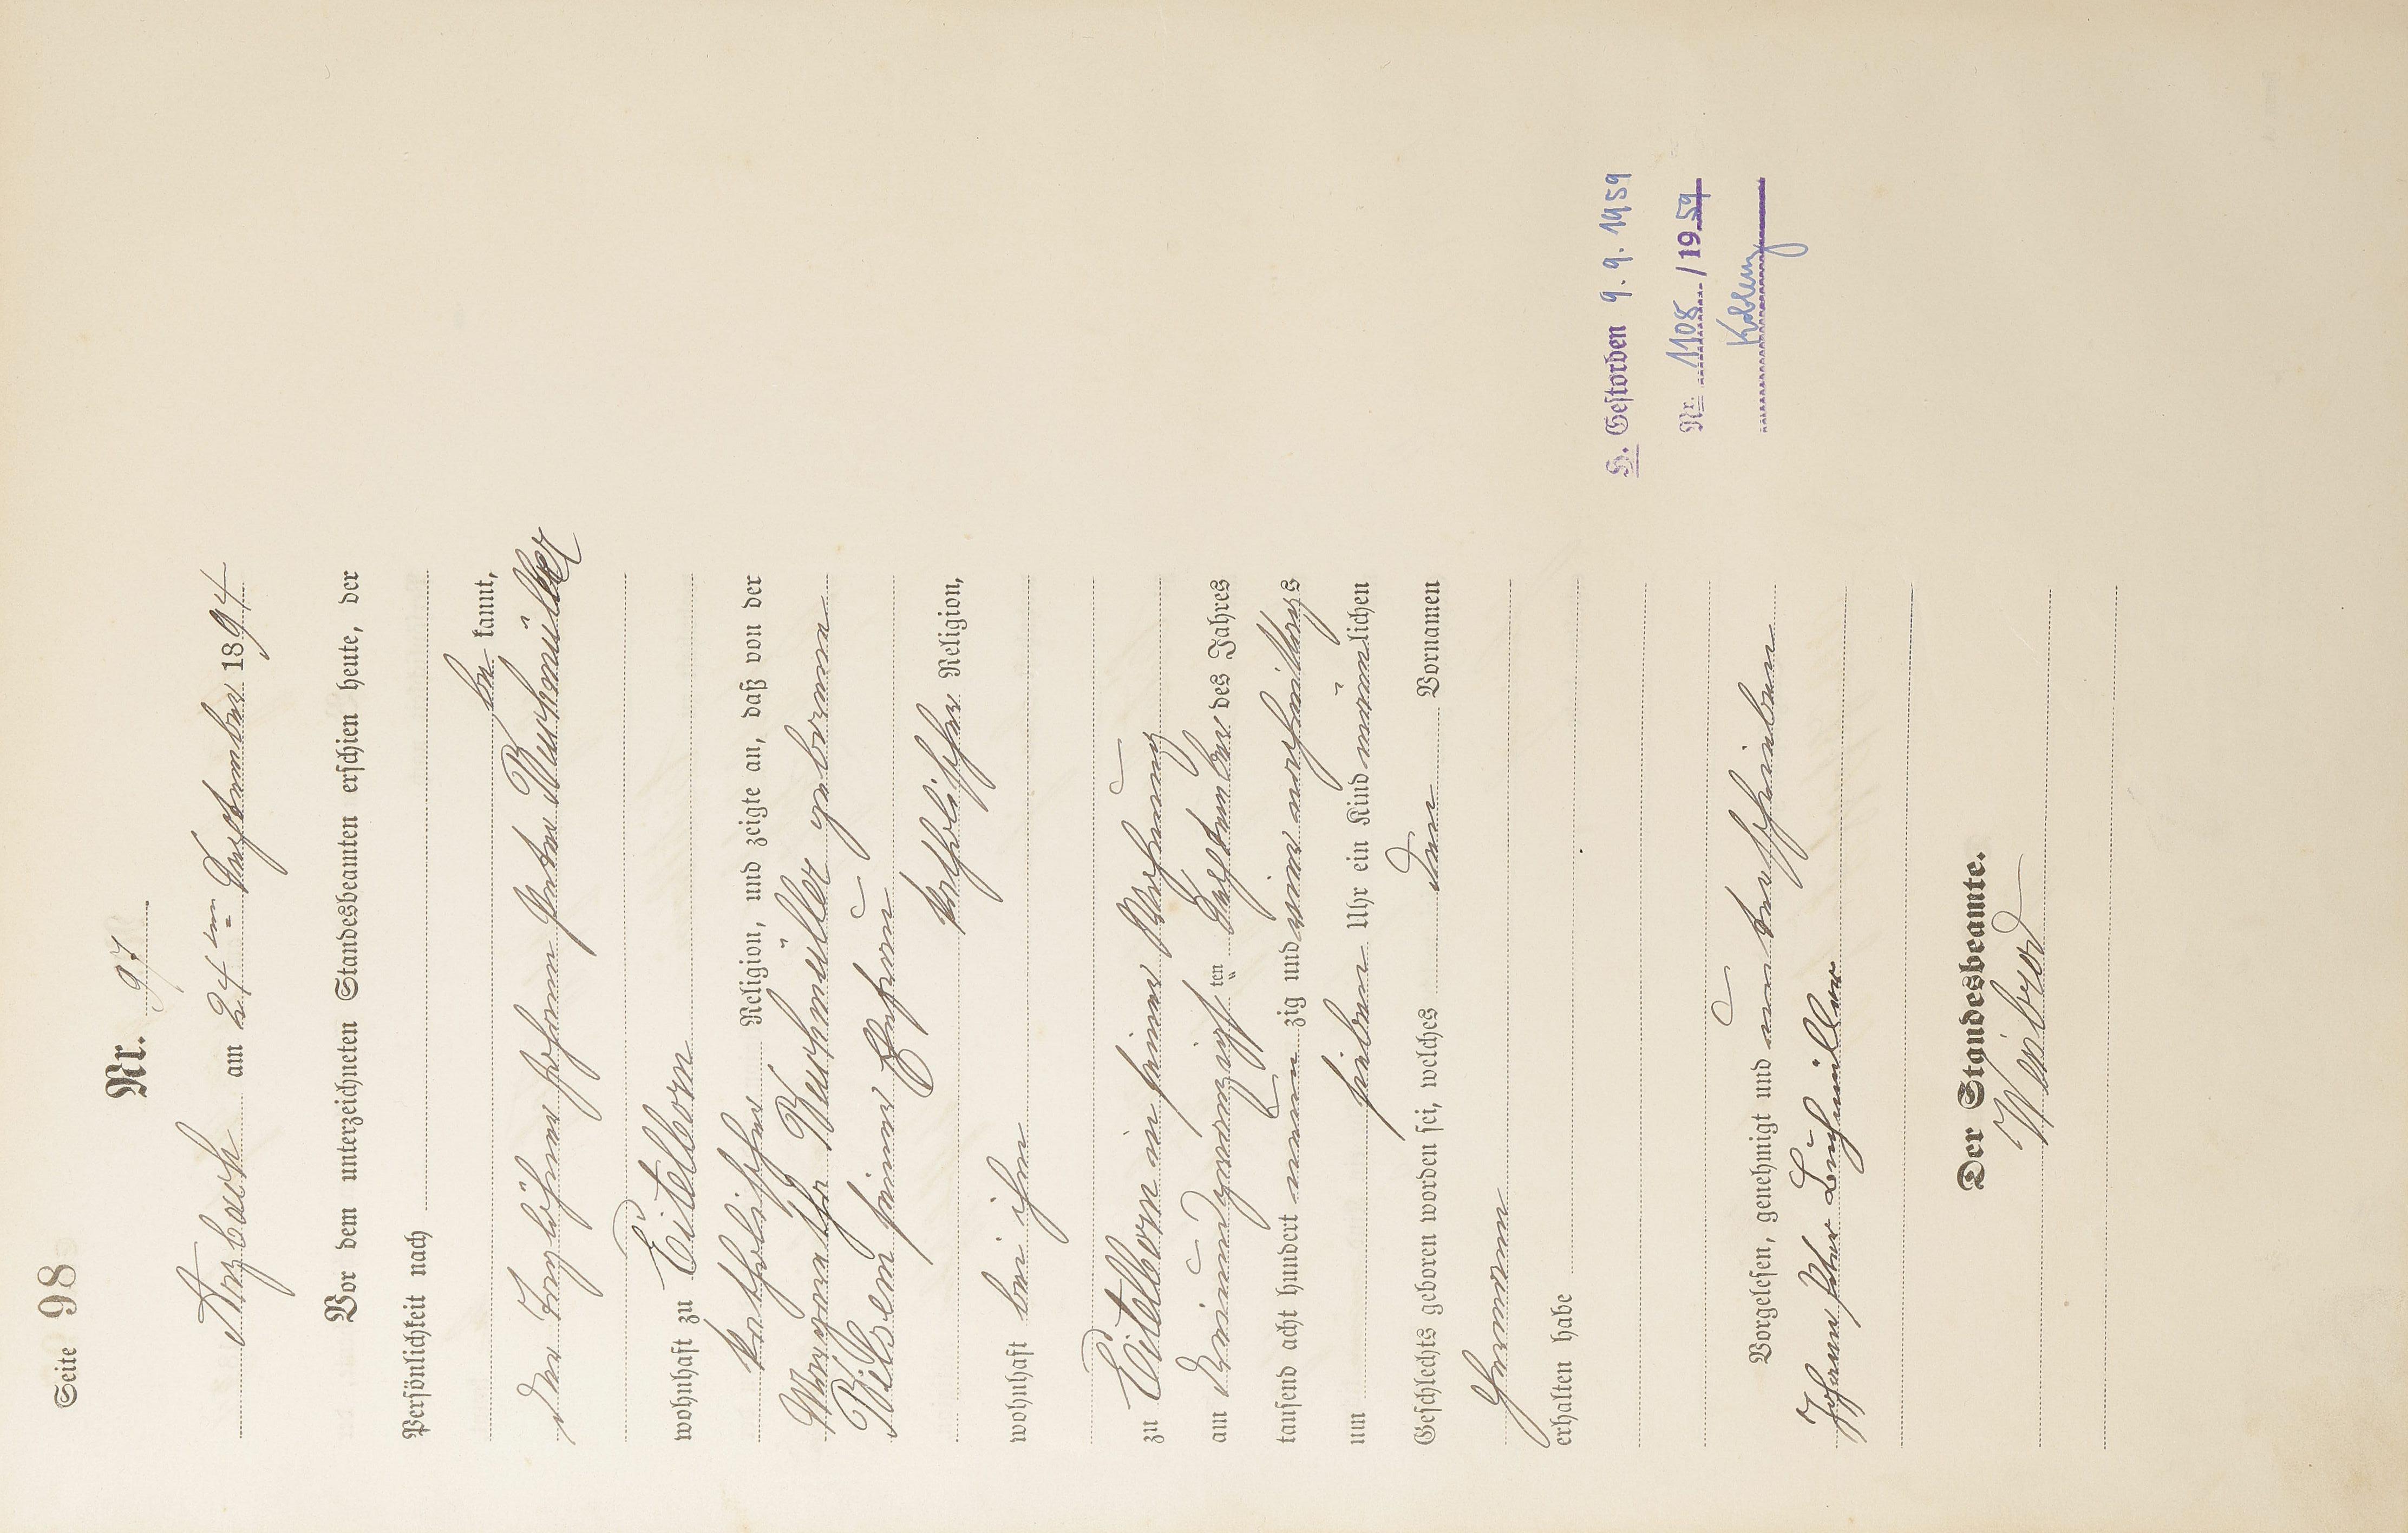 Seite 98
Nr. 97
Arzbach am 24ten September 1894
Vor dem unterzeichneten Standesbeamten erschien heute, der
Persönlichkeit nach
be kannt,
der Taglöhner Johann Peter Buchmüller
wohnhaft zu Eitelborn
katholischer Religion, und zeigte an, daß von der
Margaretha Buchmüller geborenen
seiner Ehefrau
katholischer Religion,
wohnhaft bei ihm
zu Eitelborn in seiner Wohnung
am dreiundzwanzigsten September des Jahres
tausend acht hundert neun zig und vier nachmittags
um sieben Uhr ein Kind männlichen
Geschlechts geboren worden sei, welches den Vornamen
Hermann
erhalten habe
Vorgelesen, genehmigt und unterschrieben
Johann Peter Buchmüller
Der Standesbeamte.
Weibrod
H. Gestorben 9. 9. 1959
Nr. 1108 / 1959
Koblenz